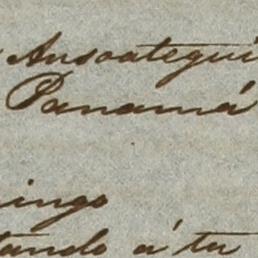 Ansoategui
Panamá
ingo
tando á tu